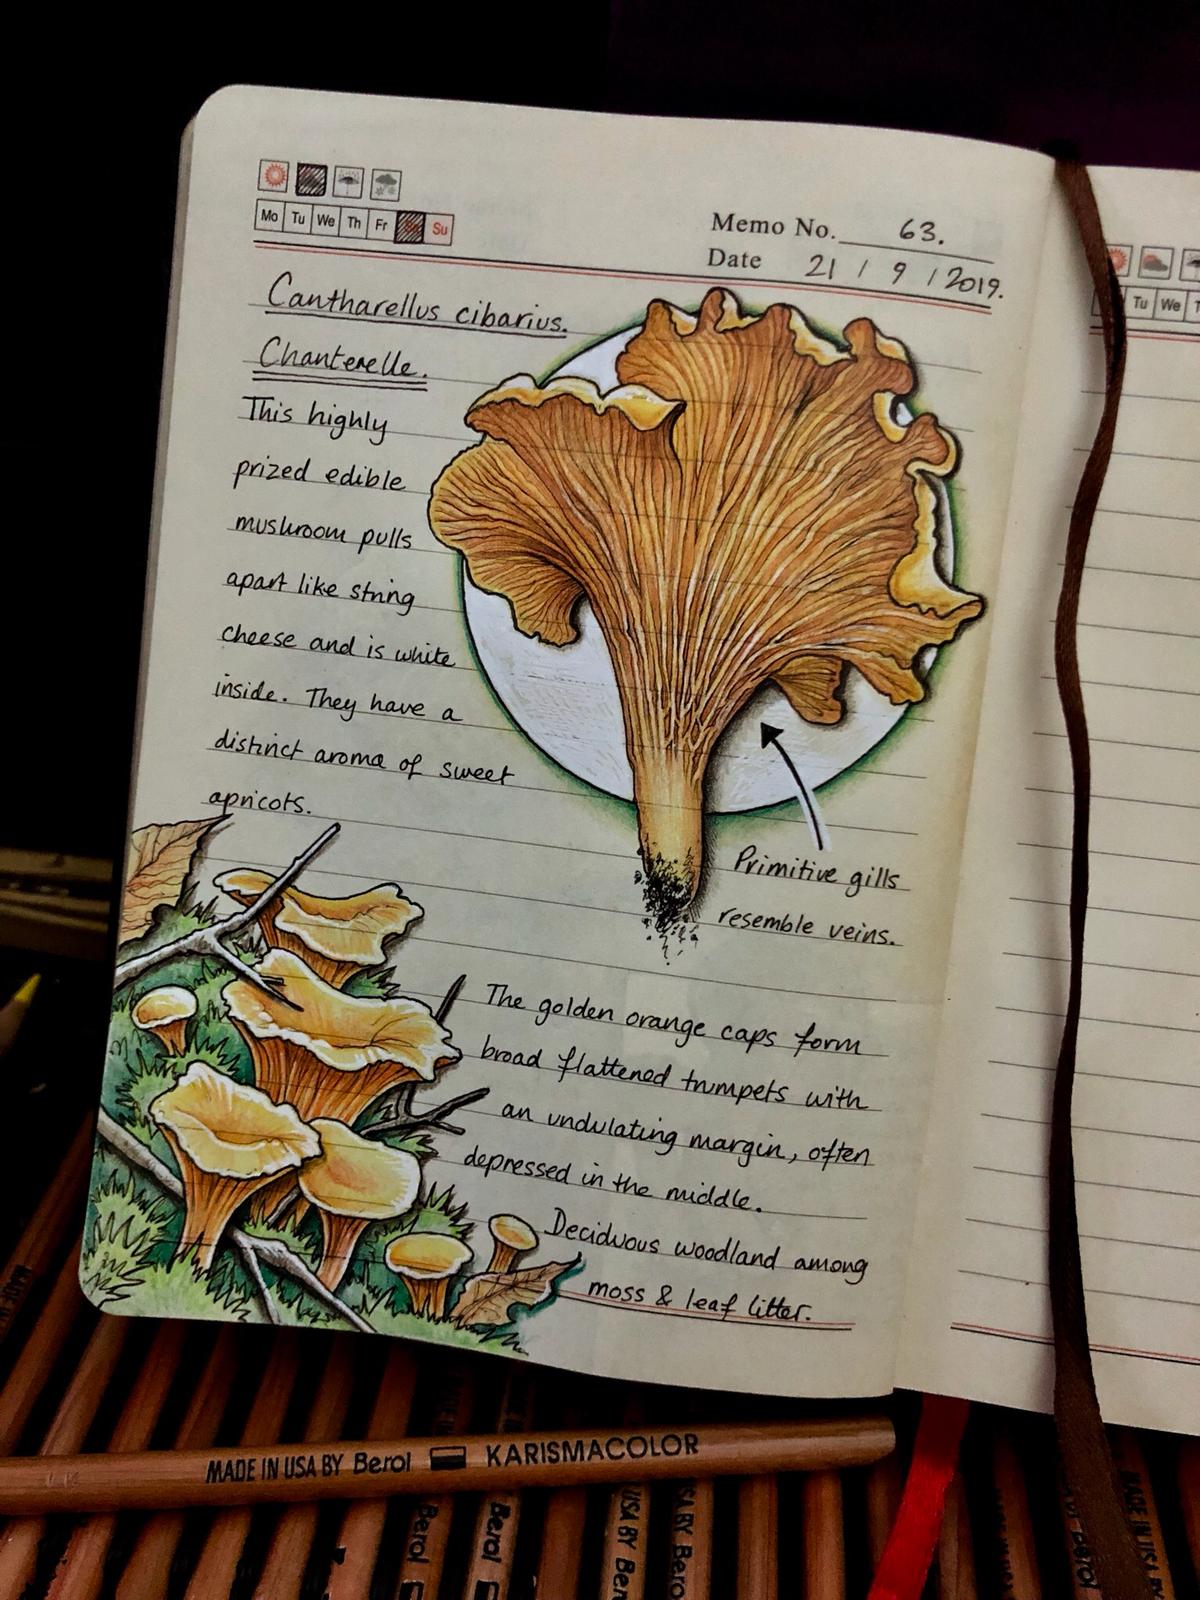 Mo Tu We Th Fr Su
Memo No. 63.
Date 21 / 9 / 2019.
Cantharellus cibarius.
Chanterelle.
This highly
prized edible
mushroom pulls
apart like string
cheese and is white
inside. They have a
distinct aroma of sweet
apricots.
Primitive gills
resemble veins.
The golden orange caps form
broad flattened trumpets with
an undulating margin, often
depressed in the middle.
Deciduous woodland among
moss & leaf litter.
Tu We
MADE IN USA BY Berol KARISMACOLOR
Berol
Berol
USA BY
SA BY Berol
Berol
MADE IN USA BY